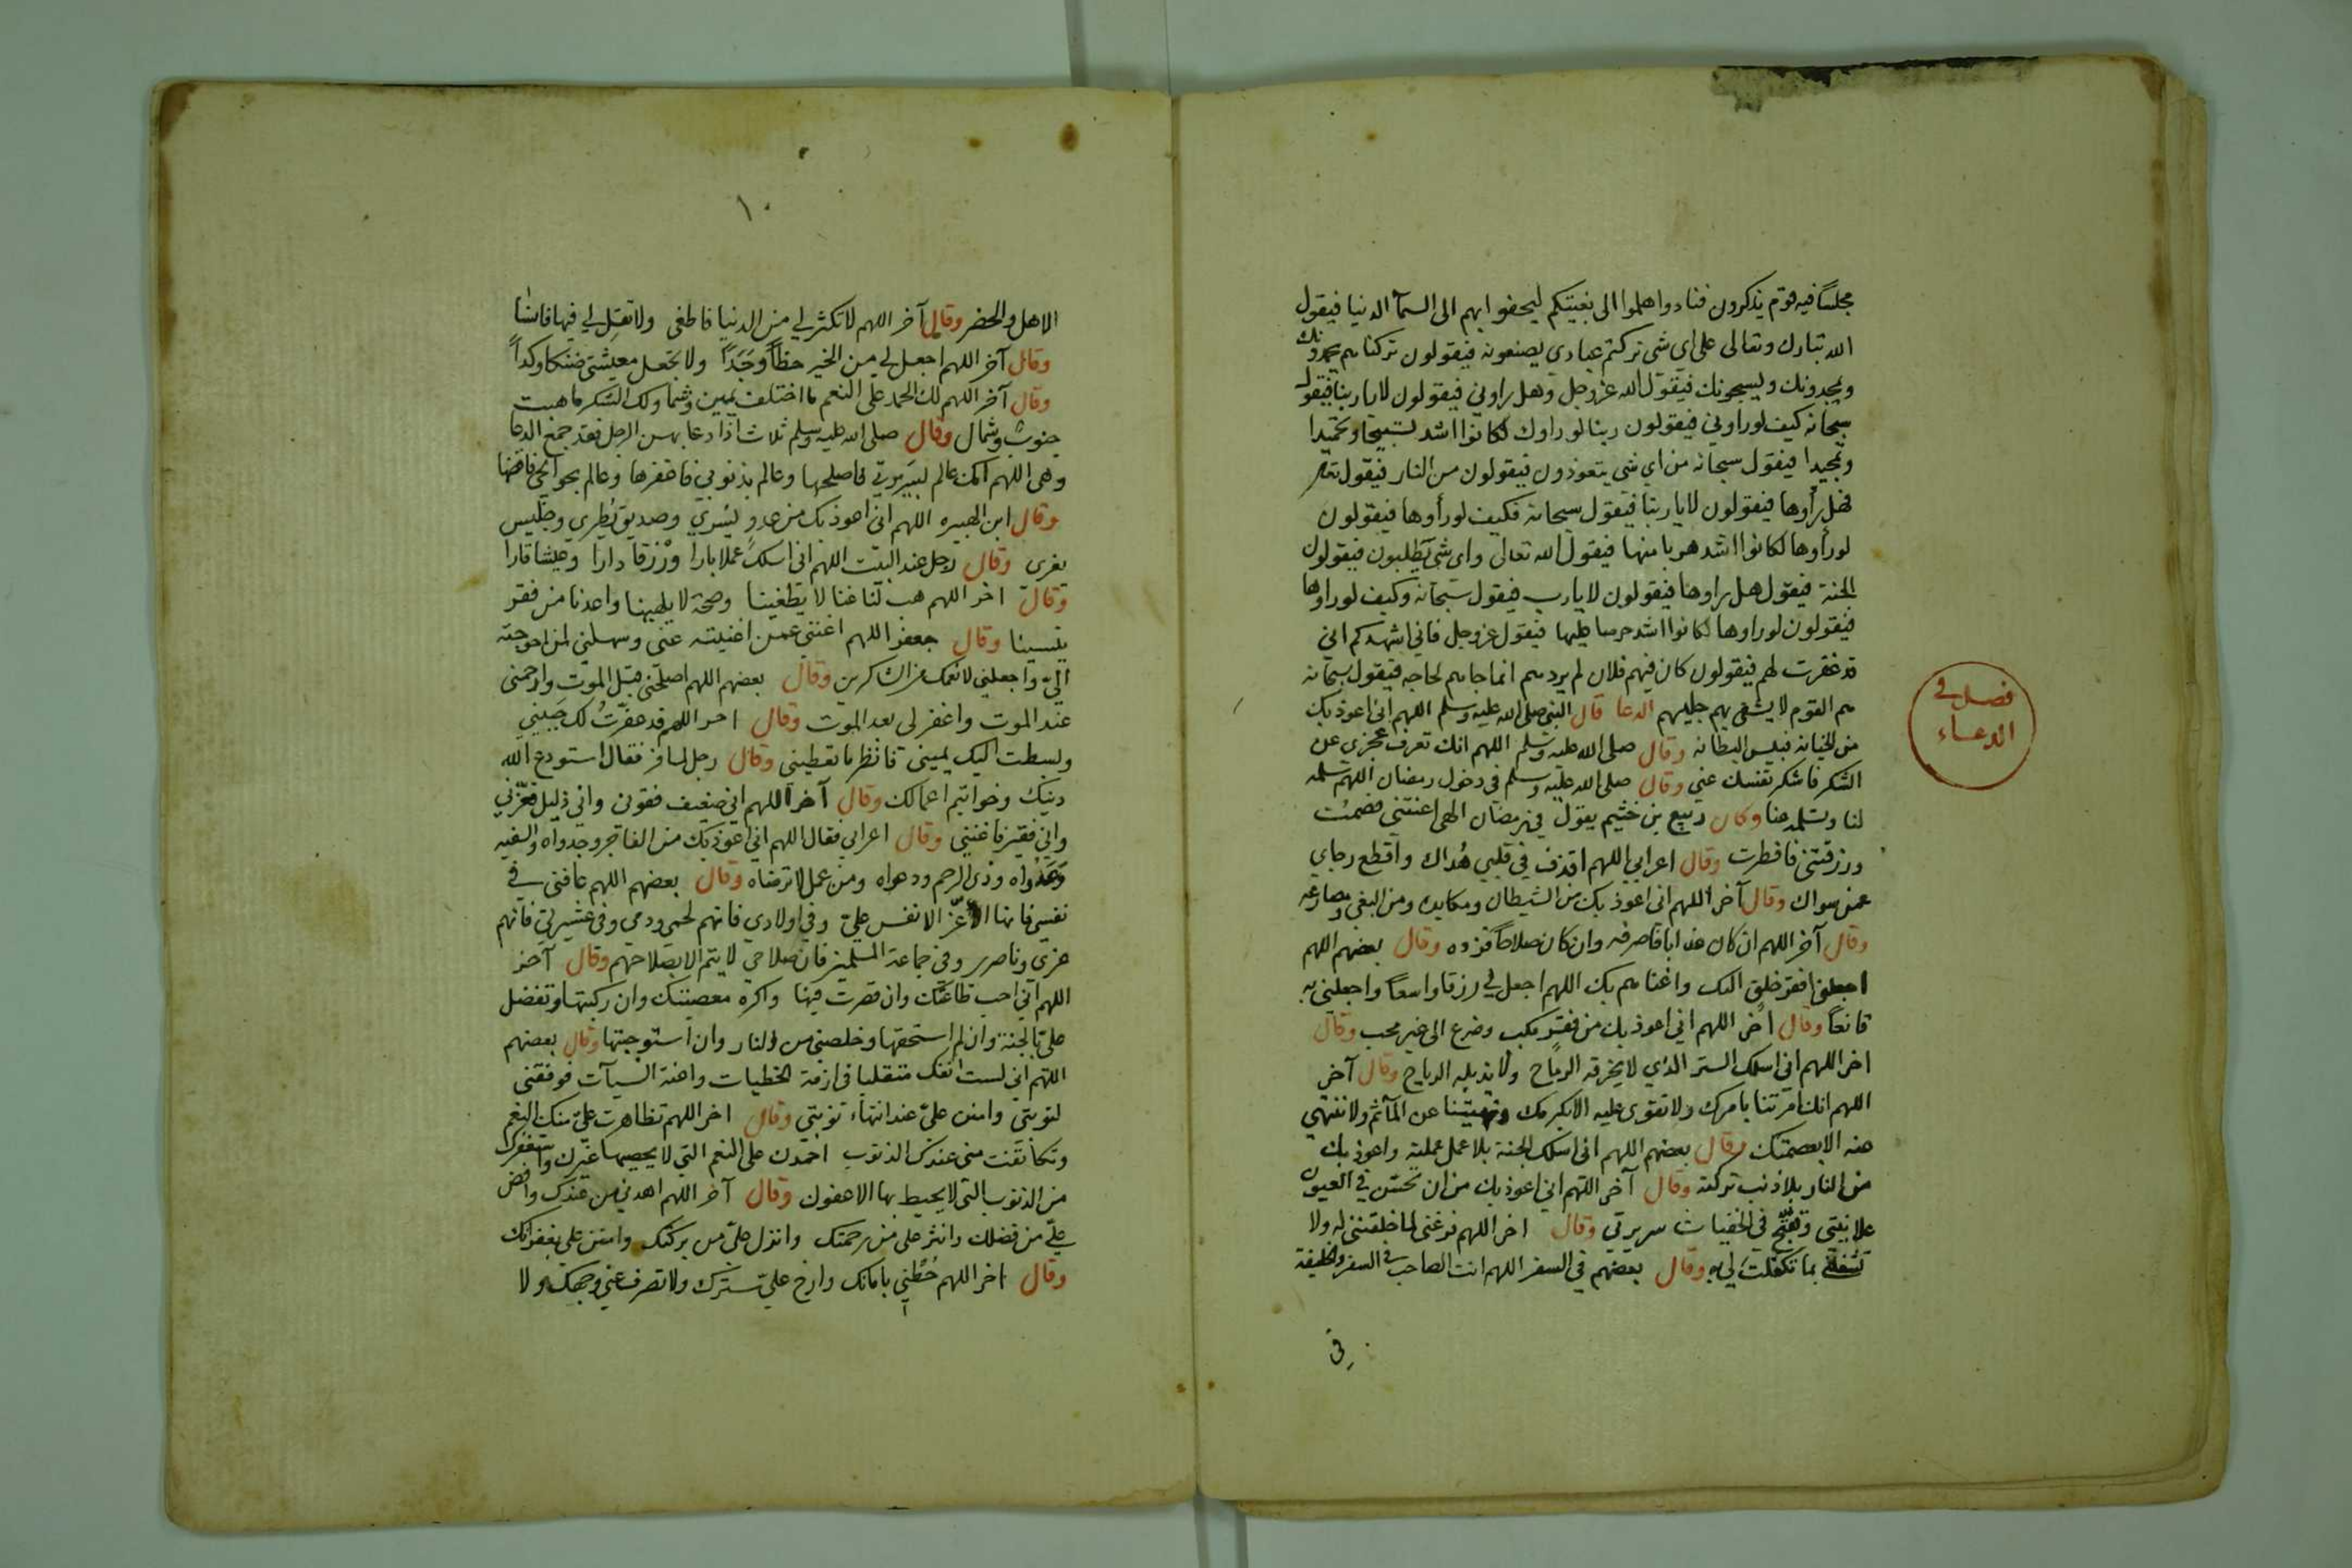 مجلسًا فيه قوم يذكرون فنادوا هلموا الى بغيتكم ليحفوا بهم الى السمآ الدنيا فيقول
الله تبارك وتعالى على اى شى تركتم عبادى يصنعونه فيقولون تركناهم يحمدونك
ويمجدونك ويسبحونك فيقول الله عز وجل وهل راونى فيقولون لا يا ربنا فيقول
سبحانه كيف لو راونى فيقولون ربنا لو راوك لكانوا اشد تسبيحا وتحميدا
وتمجيدا فيقول سبحانه من اى شى يتعوذون فيقولون من النار فيقول تعالى
فهل رأوها فيقولون لا يا ربنا فيقول سبحانه فكيف لو رأوها فيقولون
لو رأوها لكانوا اشد هربا منها فيقول الله تعالى واى شى يطلبون فيقولون
الجنة فيقول هل راوها فيقولون لا يا رب فيقول سبحانه وكيف لو راوها
فيقولون لو راوها لكانوا اشد حرصا عليها فيقول عز وجل فانى اشهدكم انى
قد غفرت لهم فيقولون كان فيهم فلان لم يردهم انما جاهم لحاجه فيقول سبحانه
هم القوم لا يشقى بهم جليسهم الدعا قال النبى صلى الله عليه وسلم اللهم انى اعوذ بك
فصل فى
الدعاء
من الخيانه فبيس البطانه وقال صلى الله عليه وسلم اللهم انك تعرف عجزى عن
الشكر فاشكر نفسك عنى وقال صلى الله عليه وسلم فى دخول رمضان اللهم سلمه
لنا وتسلمه منا وكان ربيع بن خثيم يقول فى رمضان الهى اعنتنى فصمت
ورزقتنى فافطرت وقال اعرابى اللهم اقذف فى قلبى هُداك واقطع رجاى
عمن سواك وقال آخر اللهم انى اعوذ بك من الشيطان ومكايده ومن البغى ومصارعه
وقال آخر اللهم ان كان عذابا فاصرفه وان كان صلاحًا فزده وقال بعضهم اللهم
اجعلنى افقر خلق اليك واغناهم بك اللهم اجعل لى رزقا واسعًا واجعلنى به
قانعًا وقال آخر اللهم انى اعوذ بك من فقر مكب وضرع الى غير محب وقال
اخر اللهم انى اسلك الستر الذى لا يخرقه الرماح ولا يذيله الرياح وقال آخر
اللهم انك امرتنا بامرك ولا نقوى عليه الا بكرمك ونهيتنا عن المآثم ولا ننتهى
عنه الا بعصمتك وقال بعضهم اللهم انى اسلك الجنة بلا عمل عملته واعوذ بك
من النار بلا ذنب تركته وقال آخر اللهم انى اعوذ بك من ان تحسن فى العيون
علانيتى وتقبح فى الخفيات سريرتى وقال اخر اللهم فرغنى لما خلقتنى له ولا
تشغلنى بما تكفلت لى به وقال بعضهم فى السفر اللهم انت الصاحب فى السفر والخليفة
فى
١٠
الاهل والحضر وقال آخر اللهم لا تكثر لى من الدنيا فاطغى ولا تقلل لى فيها فانسا
وقال آخر اللهم اجعل لى من الخير حظًا وجَدًا ولا تجعل معيشتى ضنكا وكدًا
وقال آخر اللهم لك الحمد على النعم ما اختلف يمين وشما ولك الشكر ما هبت
جنوب وشمال وقال صلى الله عليه وسلم ثلاث اذا دعا بهن الرجل فقد جمع الدعا
وهى اللهم انك عالم بسريرتى فاصلحها وعالم بذنوبى فاغفرها وعالم بحوائجى فاقضها
وقال ابن الهبيره اللهم انى اعوذ بك من عدو يسرى وصديق يُطرى وجليس
يغرى وقال رجل عند البيت اللهم انى اسلك عملا بارا ورزقا دارا وعيشا قارا
وقال اخر اللهم هب لنا غنا لا يطغينا وصحة لا يلهينا واعذنا من فقر
ينسينا وقال جعفر اللهم اغننى عمن اغنيته عنى وسهلنى لمن احوجته
الىّ واجعلنى لانعمك من الشاكرين وقال بعضهم اللهم اصلحنى قبل الموت وارحمنى
عند الموت واغفر لى بعد الموت وقال اخر اللهم قد عفرتُ لك جبينى
وبسطت اليك يمينى فانظر ما تعطينى وقال رجل لمسافر فقال استودع الله
دينك وخواتيم اعمالك وقال آخر اللهم انى ضعيف فقونى وانى ذليل فعزّنى
وانى فقير فاغننى وقال اعرابى فقال اللهم انى اعوذ بك من الفاجر وجدواه والسفيه
وعَدْواه وذى الرحم ودعواه ومن عمل لا ترضاه وقال بعضهم اللهم عافنى فى
نفسى فانها اعزّ الانفس علىّ وفى اولادى فانهم لحمى ودمى وفى عشيرتى فانهم
عزى وناصرى وفى جماعة المسلمين فان صلاحى لا يتم الا بصلاحهم وقال آخر
اللهم انى احب طاعتك وان قصرت فيها واكره معصيتك وان ركبتها وتفضل
علىّ بالجنة وان لم استحقها وخلصنى من النار وان استوجبتها وقال بعضهم
اللهم انى لست انفك متقلبا فى ازمة الخطيات واعنة السيآت فوفقنى
لتوبتى وامنن علىّ عند انتهاء توبتى وقال اخر اللهم تظاهرت علىّ منك النعم
وتكاثفت منى عندك الذنوب احمدك على النعم التى لا يحصيها غيرك واستغفرك
من الذنوب التى لا يحيط بها الا عفوك وقال آخر اللهم اهدنى من عندك وافض
علىّ من فضلك وانثر على من رحمتك وانزل علىّ من بركتك وامنن على بغفرانك
وقال اخر اللهم حُطْنى بامانك وارخ علىّ سترك ولا تصرف عنى وجهك ولا